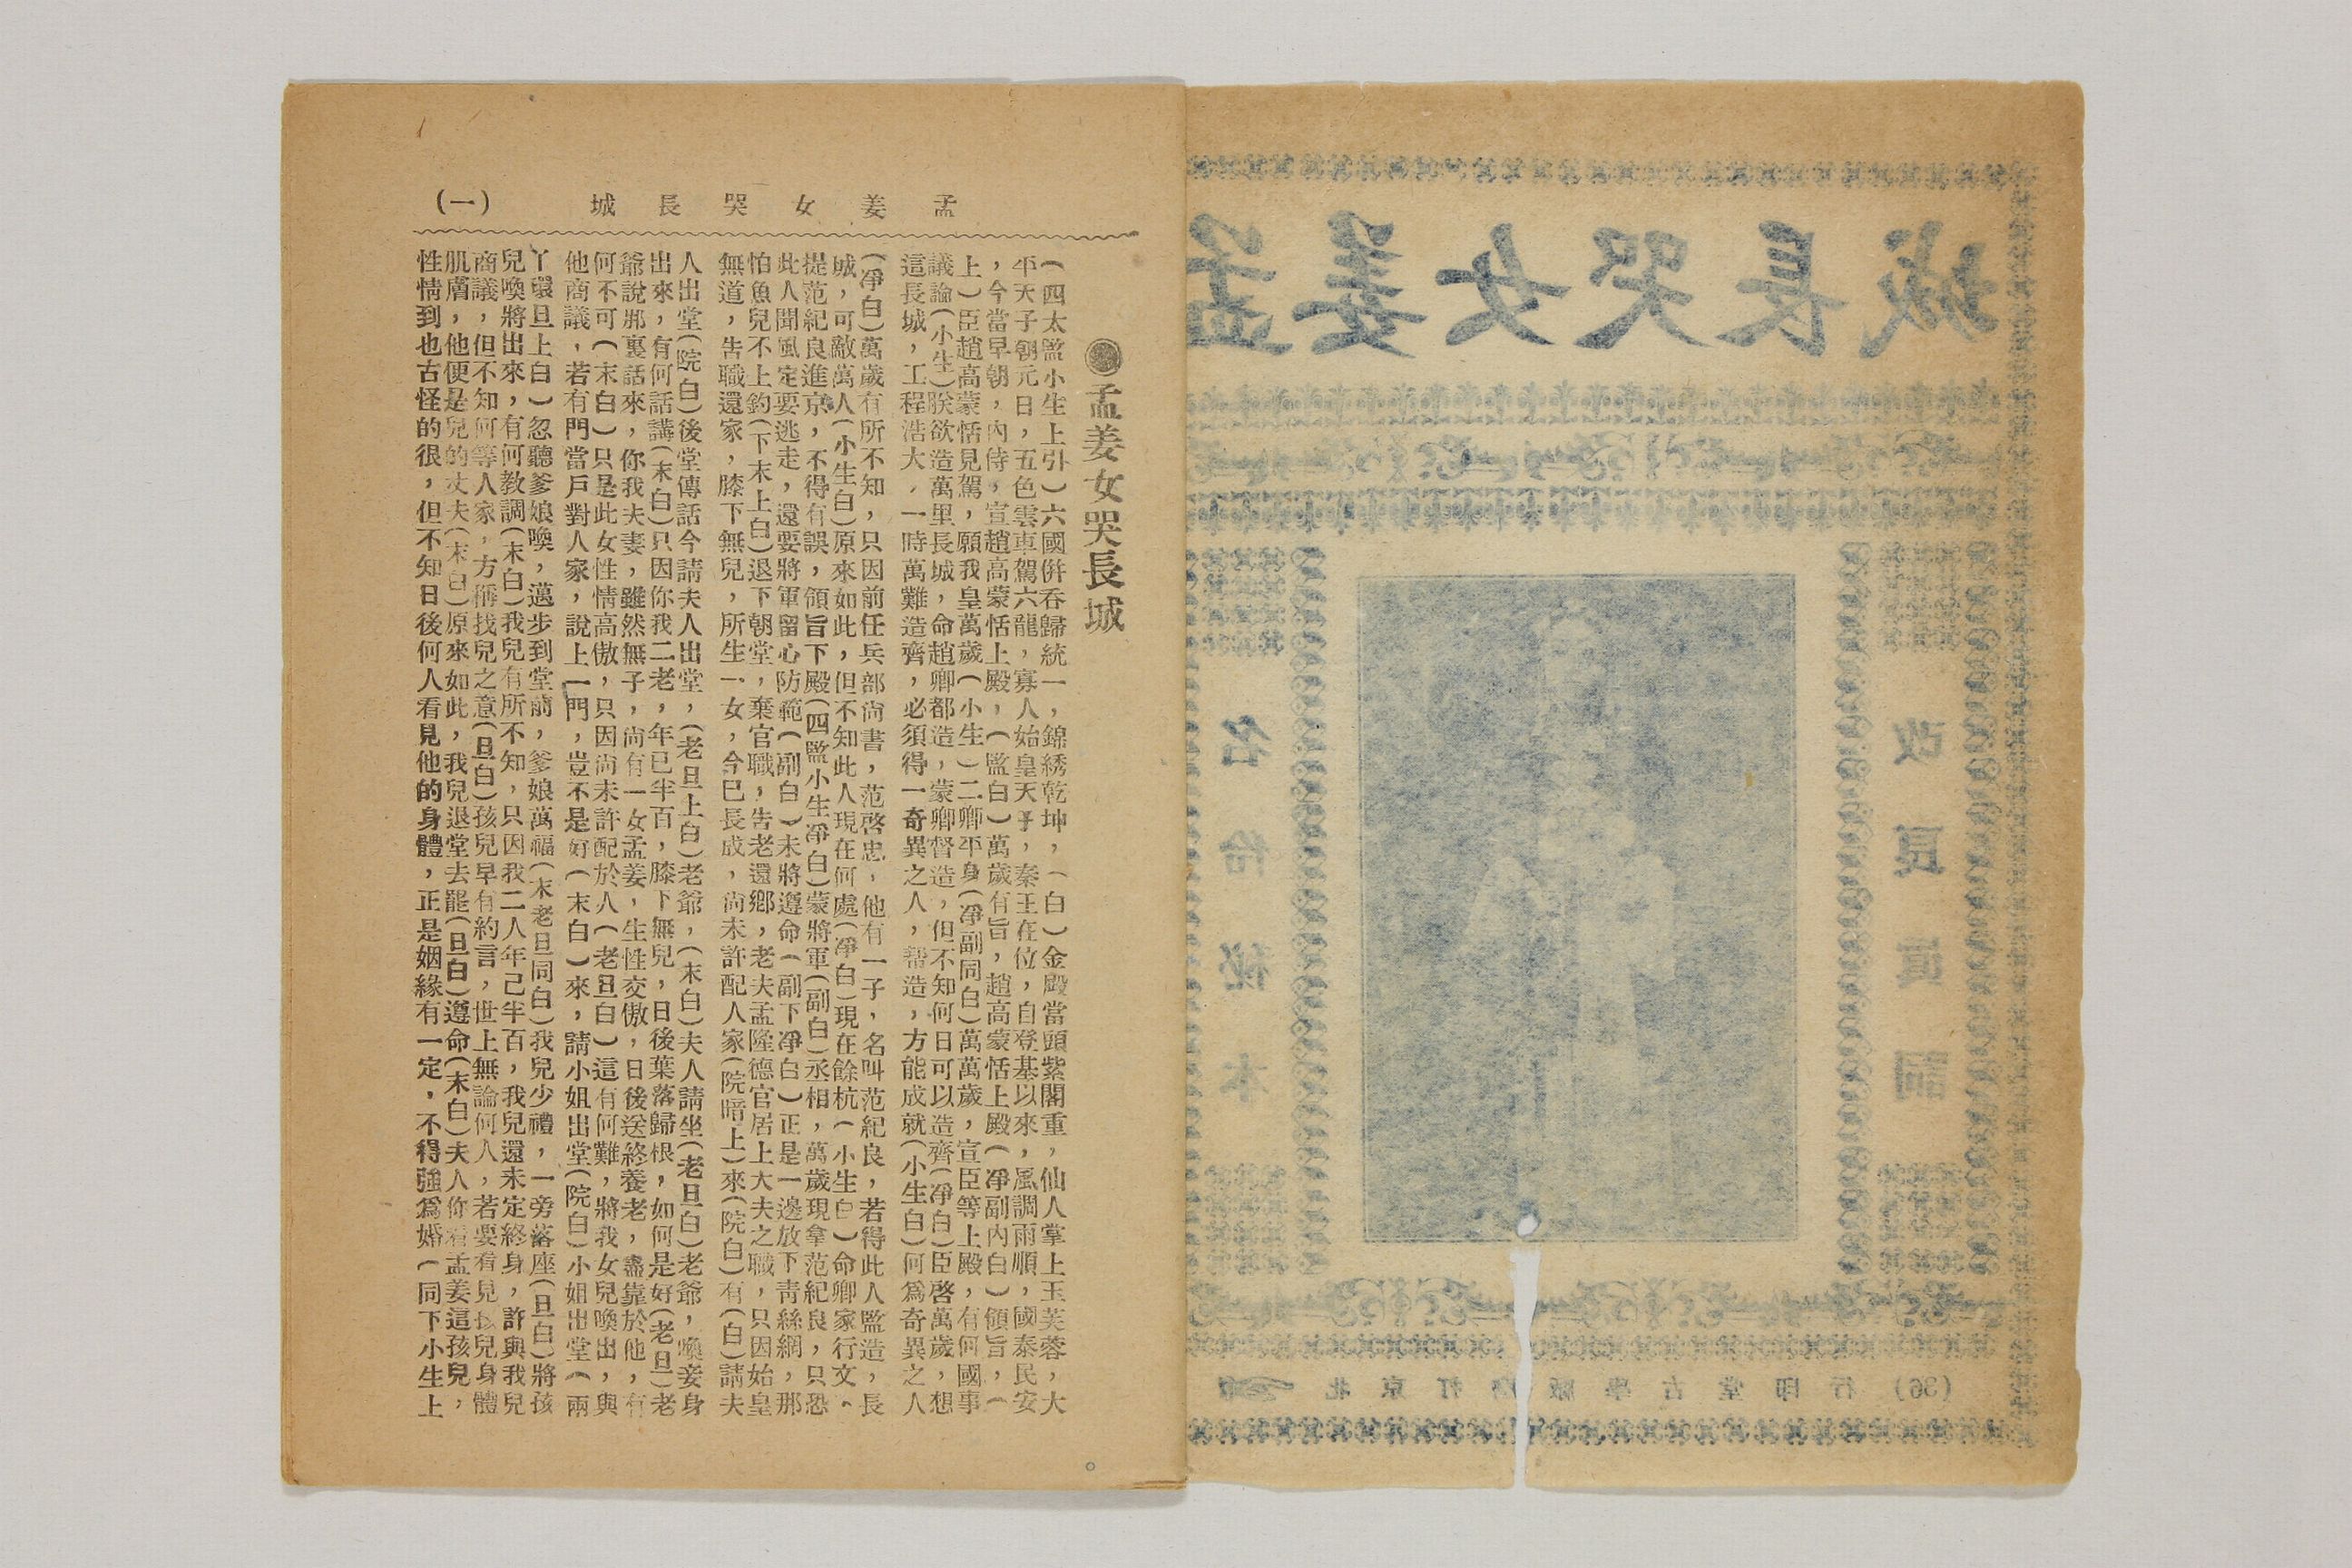 孟姜女哭長城
改良眞詞
名伶秘本
北京打磨廠學古堂印行 (36)
孟姜女哭長城 (一)
孟姜女哭長城
(四太監小生上引)六國併吞歸統一,錦綉乾坤,(白)金殿當頭紫閣重,仙人掌上玉芙蓉,大
平天子朝元日,五色雲車駕六龍,寡人始皇天子,秦王在位,自登基以來,風調雨順,國泰民安
,今當早朝,內侍,宣趙高蒙恬上殿,(監白)萬歲有旨,趙高蒙恬上殿(凈副內白)領旨,(
上)臣趙高蒙恬見駕,願我皇萬歲(小生)二卿平身(凈副同白)萬萬歲,宣臣等上殿,有何國事
議論(小生)朕欲造萬里長城,命趙卿都造,蒙卿督造,但不知何日可以造齊(凈白)臣啓萬歲,想
這長城,工程浩大,一時萬難造齊,必須得一奇異之人,帮造,方能成就(小生白)何爲奇異之人
(凈白)萬歲有所不知,只因前任兵部尙書,范啓忠,他有一子,名叫范紀良,若得此人監造,長
城,可敵萬人(小生白)原來如此,但不知此人現在何處(凈白)現在餘杭(小生白)命卿家行文,
提范紀良進京,不得有誤,領旨下殿(四監小生凈白)蒙將軍(副白)丞相,萬歲現拿范紀良,只恐
此人聞風定要逃走,還要將軍留心防範(副白)未將遵命(副下凈白)正是一邊放下靑絲網,那
怕魚兒不上鈎(下末上白)退下朝堂,棄官職,吿老還鄕,老夫孟隆德官居上大夫之職,只因始皇
無道,吿職還家,膝下無兒,所生一女,今已長成,尙未許配人家(院暗上)來(院白)有(白)請夫
人出堂(院白)後堂傳話今請夫人出堂,(老旦上白)老爺,(末白)夫人請坐(老旦白)老爺,喚妾身
出來,有何話講(末白)只因你我二老,年已半百,膝下無兒,日後葉落歸根,如何是好(老旦)老
爺說那裏話來,你我夫妻,雖然無子,尙有一女孟姜,生性交傲,日後送終養老,盡靠於他,有
何不可(末白)只是此女性情高傲,只因尙未許配於人(老旦白)這有何難,將我女兒喚出,與
他商議,若有門當戶對人家,說上一門,豈不是好(末白)來,請小姐出堂(院白)小姐出堂(兩
丫環旦上白)忽聽爹娘喚,邁步到堂前,爹娘萬福(末老旦同白)我兒少禮,一旁落座(旦白)將孩
兒喚將出來,有何教調(末白)我兒有所不知,只因我二人年己半百,我兒還未定終身,許與我兒
商議,但不知何等人家,方稱找兒之意(旦白)孩兒早有約言,世上無論何人,若要看見孩兒身體
肌膚,他便是兒的丈夫(末白)原來如此,我兒退堂去罷(旦白)遵命(末白)夫人你看孟姜這孩兒,
性情到也古怪的很,但不知日後何人看見他的身體,正是姻緣有一定,不得強爲婚(同下小生上